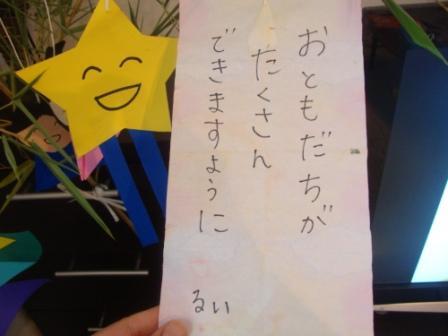 おともだちが
たくさん
できますように
るい